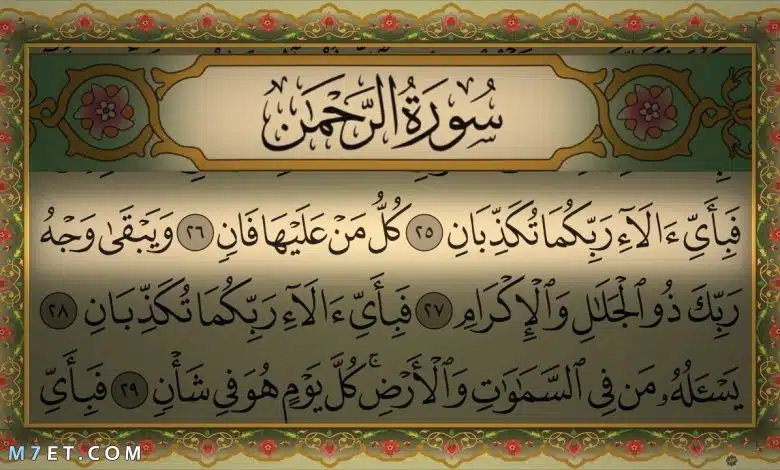 سُورَةُ الرَّحْمَٰن
فَبِأَيِّ ءَالَآءِ رَبِّكُمَا تُكَذِّبَانِ ٢٥ كُلُّ مَنْ عَلَيْهَا فَانٍ ٢٦ وَيَبْقَىٰ وَجْهُ
رَبِّكَ ذُو ٱلْجَلَٰلِ وَٱلْإِكْرَامِ ٢٧ فَبِأَيِّ ءَالَآءِ رَبِّكُمَا تُكَذِّبَانِ ٢٨
يَسْـَٔلُهُۥ مَن فِي ٱلسَّمَٰوَٰتِ وَٱلْأَرْضِ ۚ كُلَّ يَوْمٍ هُوَ فِي شَأْنٍ ٢٩ فَبِأَيِّ
M7ET.COM